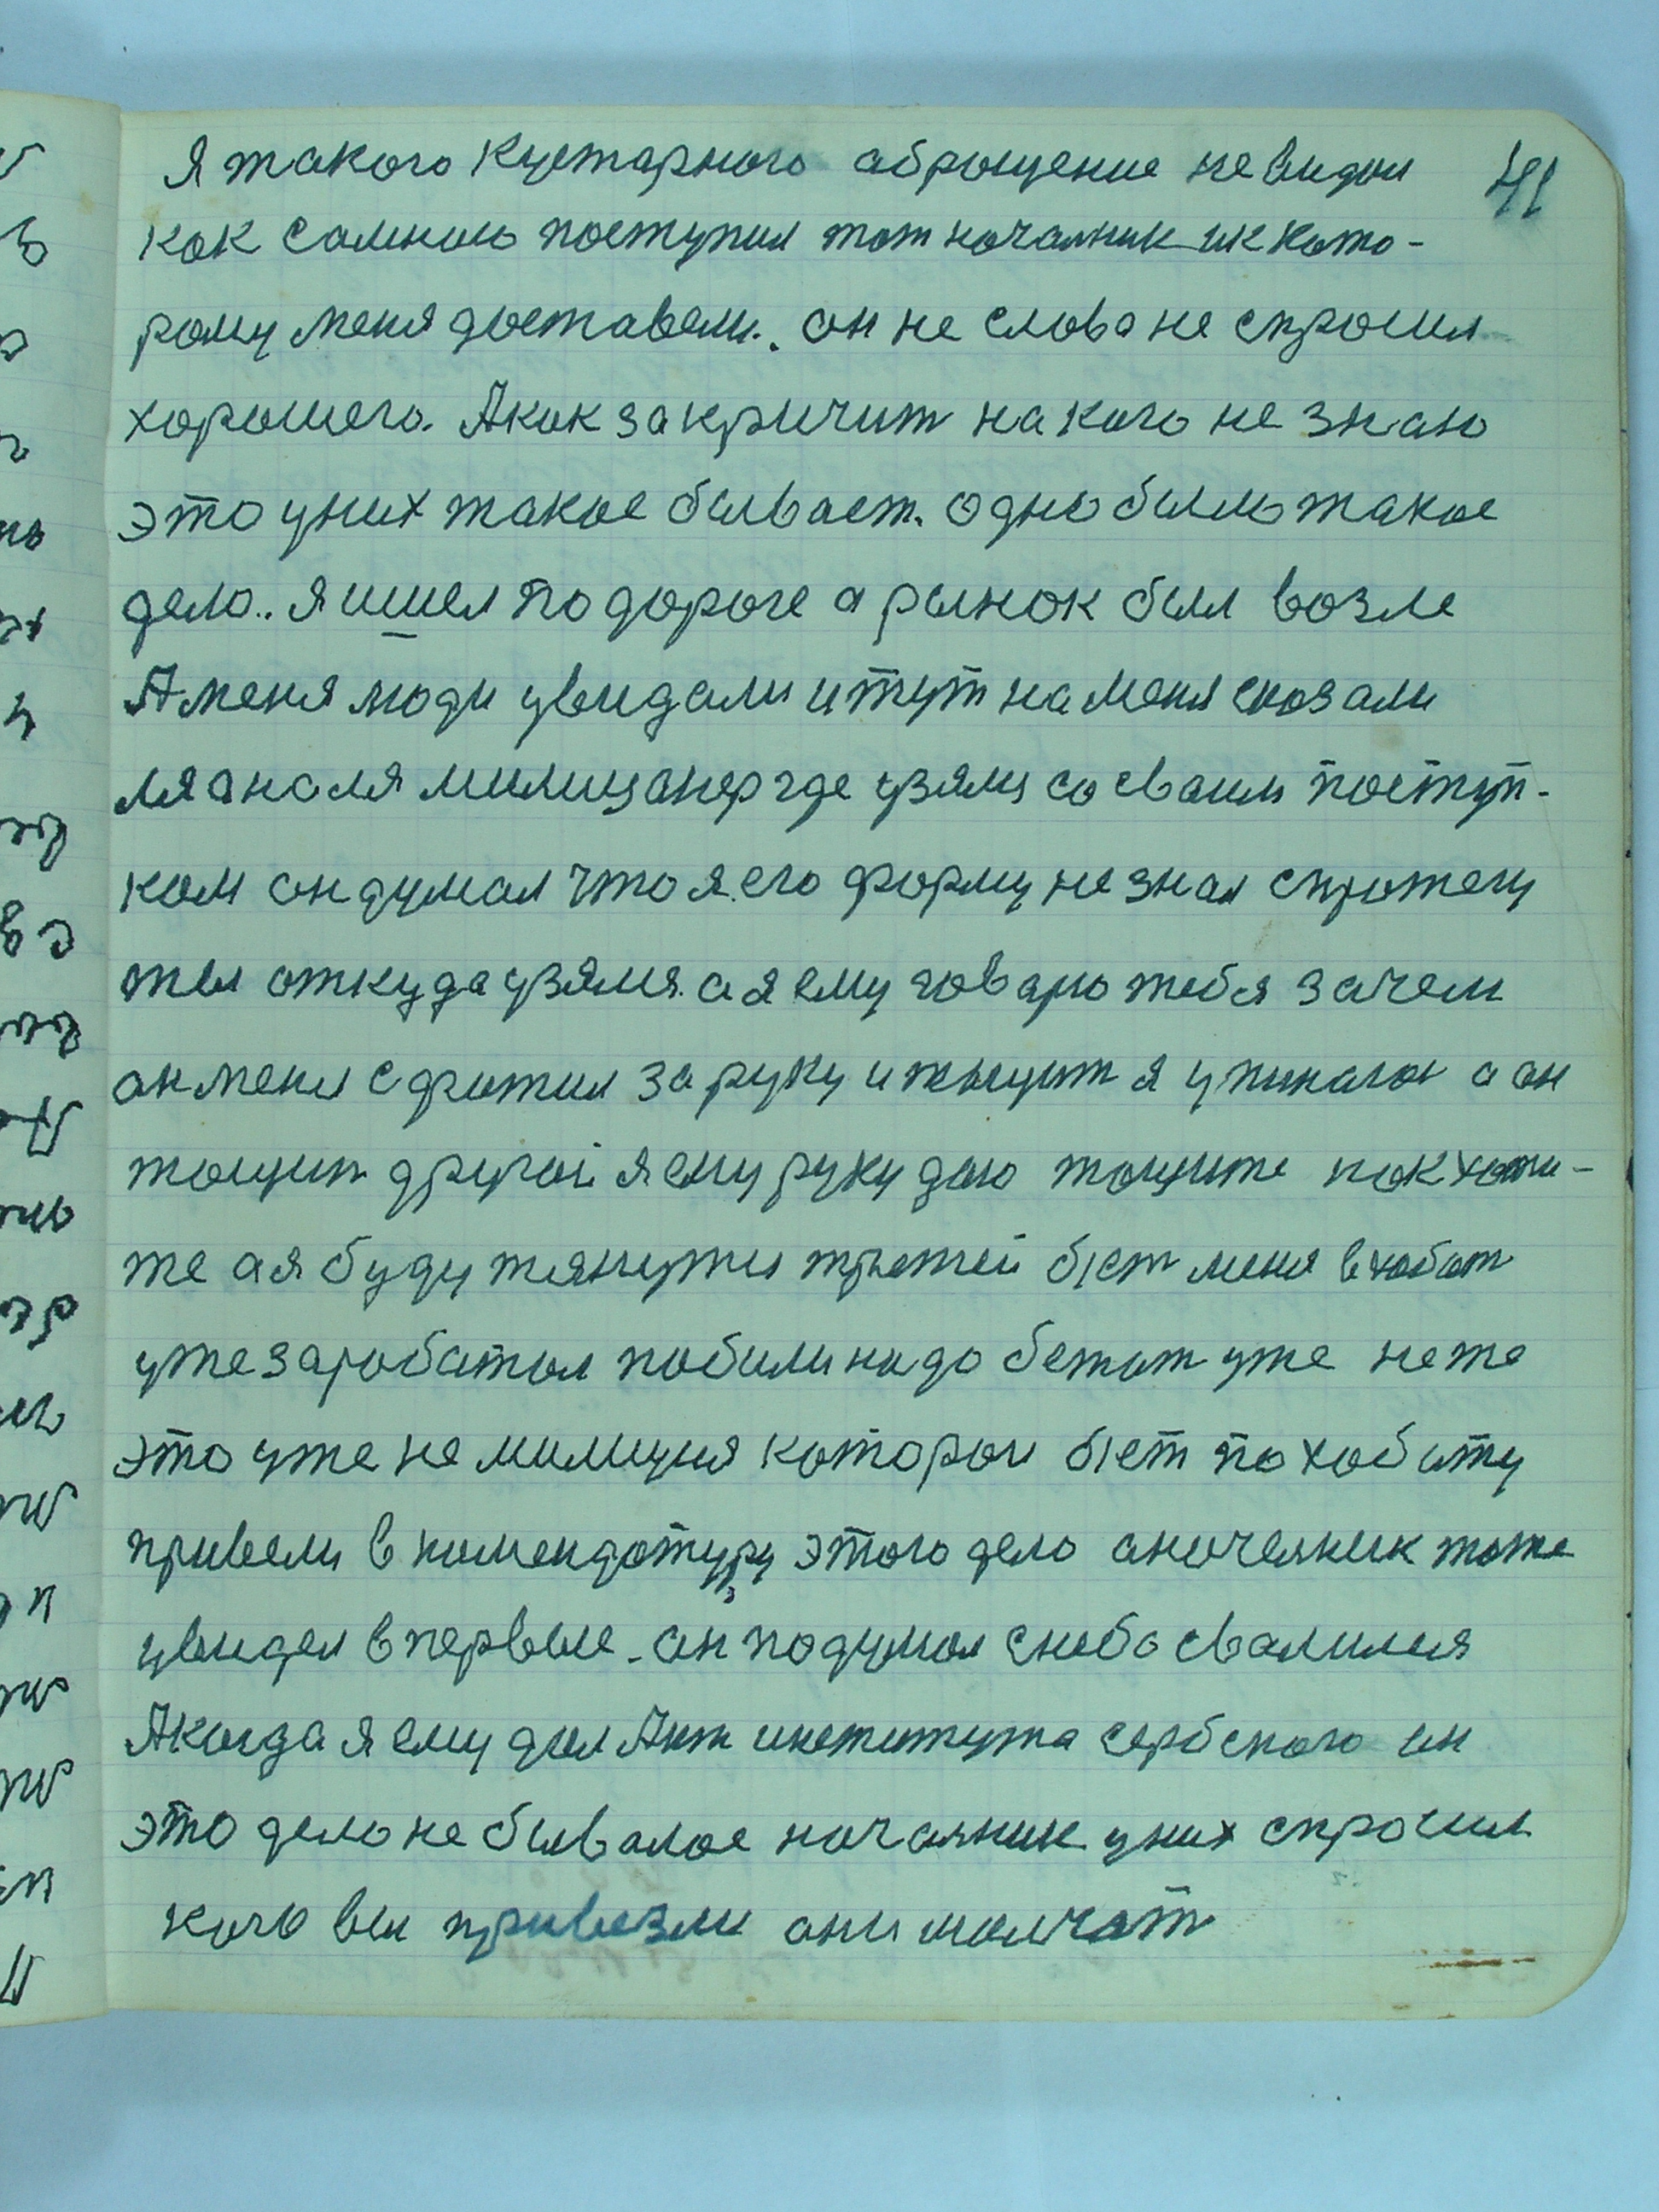 41
Я такого кустарного аброщение не видал
как самною поступил тот началник ик кото-
рому меня доставели. он не слова не спросил
хорошего. А как закричит на кого не знаю
это уних такое бывает. одно было такое
дело.. я ишел по дороге а рынок был возле
А меня люди увидали итут на меня сказали
ля а на ля милицанер где узялц со сваим поступ-
ком он думал что я его форму не знал спротецу
ты откуда узялся. а я ему говарю тебя зачем
он меня сфотил за руку и тыщит я упинаюс а он
тощит другой я ему руку даю тощите как хоти-
те а я буду тянутся третей бiет меня в хобот
уже заработал побили надо бежат уже не те
это уже не милиция которои бiет по хоботу
привели в комендотуру этого дело а ночелник тоже
увидел впервые. он подумал снеба свалился
А когда я ему дал Акт института сербского ин
это дело не бывалое началник уних спросил
кого вы привезли они молчат